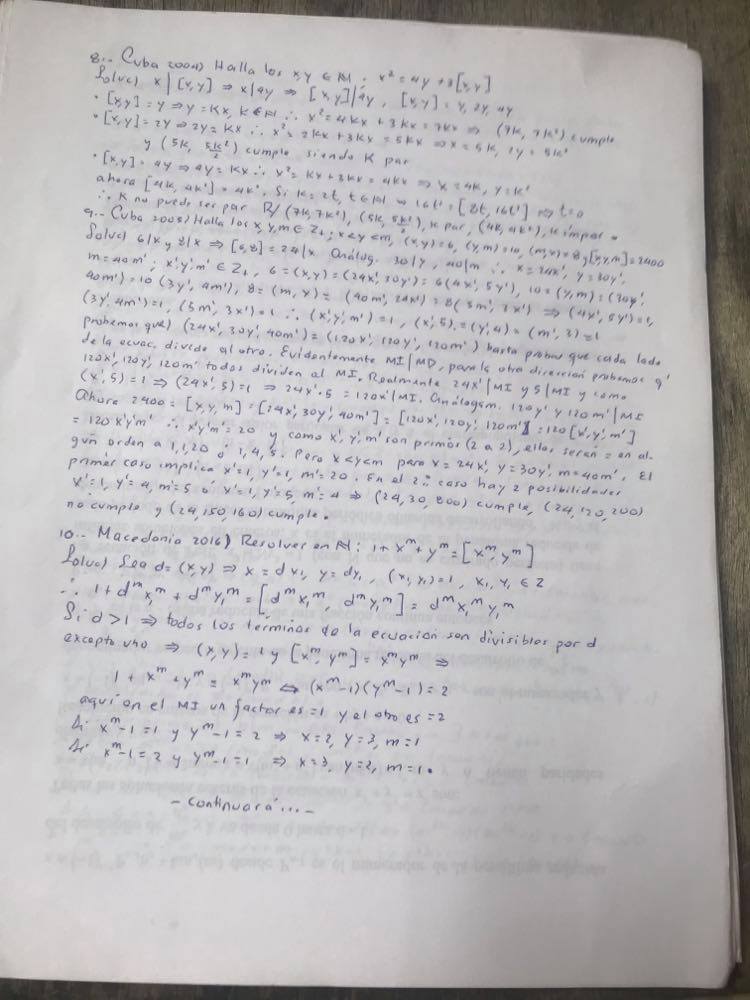 8.- Cuba 2004) Halla los x,y ∈ N : x² = 4y + 3[x,y]
Soluc) x | [x,y] ⇒ x|4y ⇒ [x,y]|4y, [x,y] = y, 2y, 4y
• [x,y] = y ⇒ y = kx, k ∈ N ∴ x² = 4kx + 3kx = 7kx ⇒ (7k, 7k²) cumple
• [x,y] = 2y ⇒ 2y = kx ∴ x² = 2kx + 3kx = 5kx ⇒ x = 5k, 2y = 5k²
y (5k, 5k²/2) cumple siendo k par
• [x,y] = 4y ⇒ 4y = kx ∴ x² = kx + 3kx = 4kx ⇒ x = 4k, y = k²
ahora [4k, 4k²] = 4k². Si k = 2t, t ∈ N ⇒ 16t² = [8t, 16t²] ⇒ t = 0
∴ k no puede ser par R/ (7k, 7k²), (5k, 5k²/2), k par, (4k, 4k²), k impar •
9.- Cuba 2005) Halla los x,y,m ∈ Z+ ; x<y<m, (x,y) = 6, (y,m) = 10, (m,x) = 8 y [x,y,m] = 2400
Soluc) 6|x y 8|x ⇒ [6,8] = 24|x. Análog. 30|y, 40|m ∴ x = 24x', y = 30y',
m = 40m' ; x',y',m' ∈ Z+, 6 = (x,y) = (24x', 30y') = 6(4x', 5y'), 10 = (y,m) = (30y',
40m') = 10(3y', 4m'), 8 = (m,x) = (40m', 24x') = 8(5m', 3x') ⇒ (4x', 5y') = 1,
(3y', 4m') = 1, (5m', 3x') = 1 ∴ (x',y',m') = 1, (x',5) = (y',4) = (m',3) = 1
probemos que) (24x', 30y', 40m') = (120x', 120y', 120m') basta probar que cada lado
de la ecuac. divide al otro. Evidentemente MI|MD, para la otra dirección probemos q'
120x', 120y', 120m' todos dividen al MI. Realmente 24x'|MI y 5|MI y como
(x',5) = 1 ⇒ (24x',5) = 1 ⇒ 24x'•5 = 120x'|MI. Análogam. 120y' y 120m'|MI
Ahora 2400 = [x,y,m] = [24x', 30y', 40m'] = [120x', 120y', 120m'] = 120[x',y',m']
= 120x'y'm' ∴ x'y'm' = 20 y como x',y',m' son primos (2 a 2), ellos serán = en al-
gún orden a 1,1,20 ó 1,4,5. Pero x<y<m para x = 24x', y = 30y', m = 40m'. El
primer caso implica x'=1, y'=1, m'=20. En el 2º caso hay 2 posibilidades
x'=1, y'=4, m'=5 ó x'=1, y'=5, m'=4 ⇒ (24,30,800) cumple, (24,120,200)
no cumple y (24,150,160) cumple •
10.- Macedonia 2016) Resolver en N : 1 + x^m + y^m = [x^m, y^m]
Soluc) Sea d = (x,y) ⇒ x = dx₁, y = dy₁, (x₁,y₁) = 1, x₁, y₁ ∈ Z
∴ 1 + d^m x₁^m + d^m y₁^m = [d^m x₁^m, d^m y₁^m] = d^m x₁^m y₁^m
Si d > 1 ⇒ todos los términos de la ecuación son divisibles por d
excepto uno ⇒ (x,y) = 1 y [x^m, y^m] = x^m y^m ⇒
1 + x^m + y^m = x^m y^m ⇔ (x^m-1)(y^m-1) = 2
aquí en el MI un factor es =1 y el otro es =2
Si x^m-1 = 1 y y^m-1 = 2 ⇒ x = 2, y = 3, m = 1
Si x^m-1 = 2 y y^m-1 = 1 ⇒ x = 3, y = 2, m = 1 •
- continuará... -